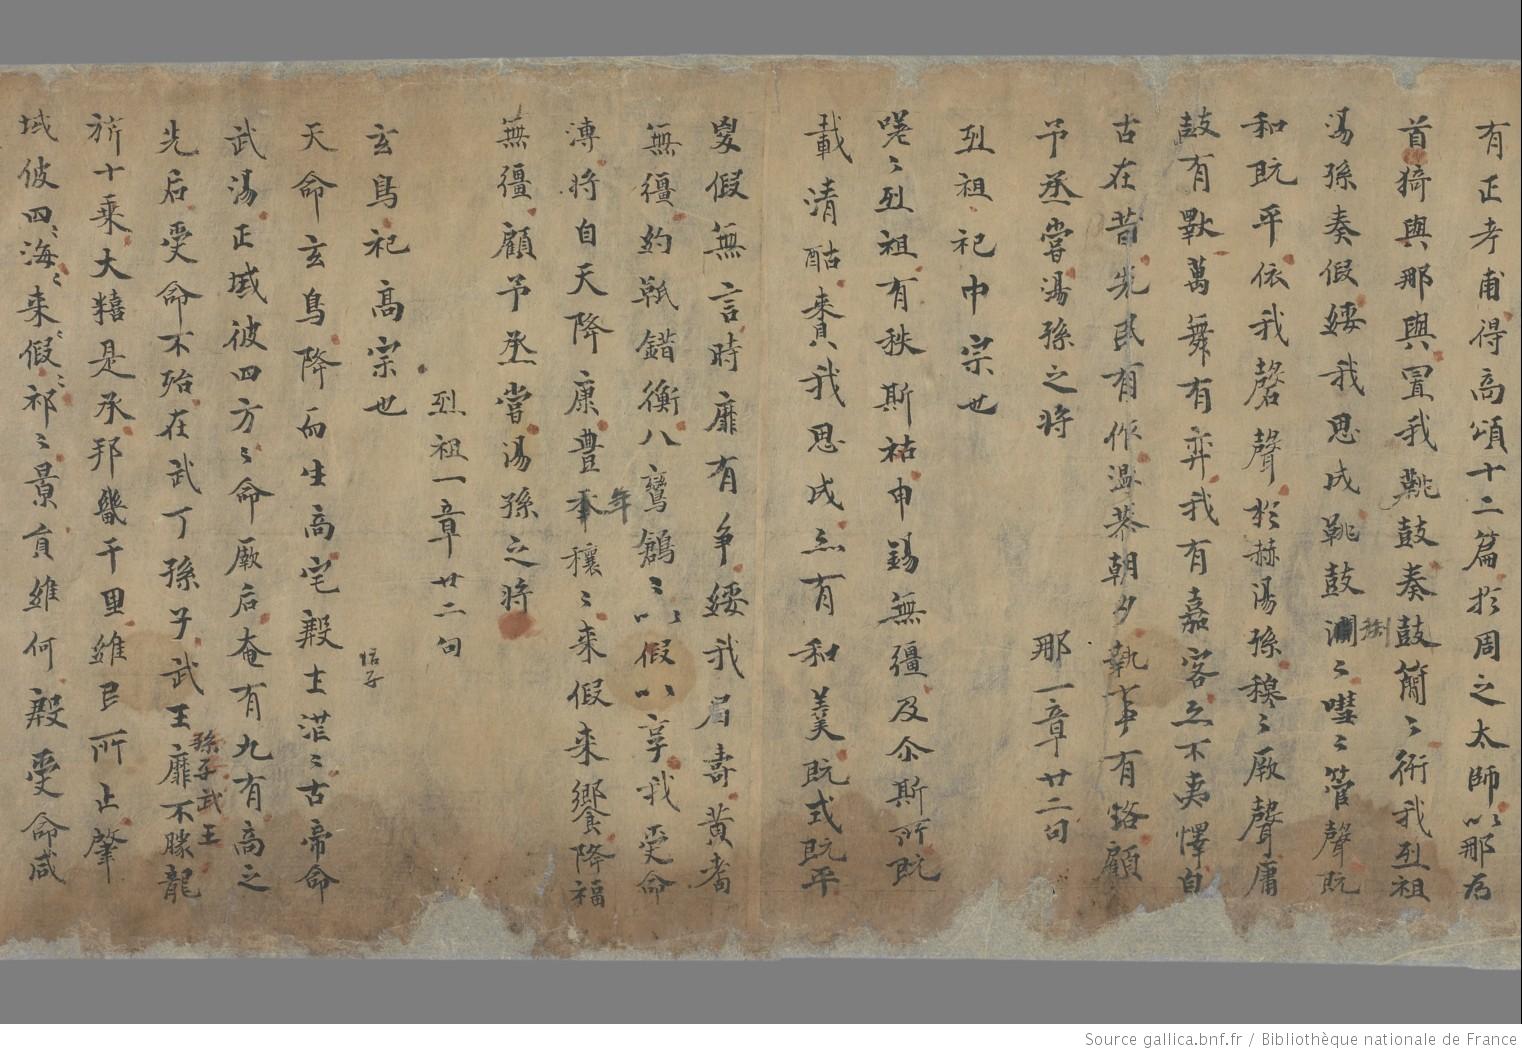 有正考甫得高頌十二篇於周之太師以那为
首猗與那與置我鞉鼓奏鼓簡〻衎我烈祖
湯孫奏假綏我思成鞉鼓渊〻嘒〻管聲既
和既平依我磬聲於赫湯孫穆〻厥聲庸
鼓有斁萬舞有弈我有嘉客亦不夷懌自
古在昔先民有作温恭朝夕執事有恪顧
予烝嘗湯孫之將 那一章廿二句
烈祖祀中宗也
嗟〻烈祖有秩斯祜申錫無疆及尒斯所既
載清酤賚我思成亦有和羹既戒既平
鬷假無言時靡有争綏我眉壽黄耇
無疆約軝錯衡八鸞鶬〻以假以享我受命
溥將自天降康豊年穰〻来假来饗降福
無疆顧予烝嘗湯孫之將
烈祖一章廿二句
玄鳥祀高宗也
天命玄鳥降而生商宅殷士茫〻古帝命
武湯正域彼四方〻命厥后奄有九有商之
先后受命不殆在武丁孫子武王靡不勝龍
孫子武王
旂十乗大糦是承邦畿千里維民所止肇
域彼四〻海〻来〻假〻祁〻景員維何殷受命咸
Source gallica.bnf.fr / Bibliothèque nationale de France